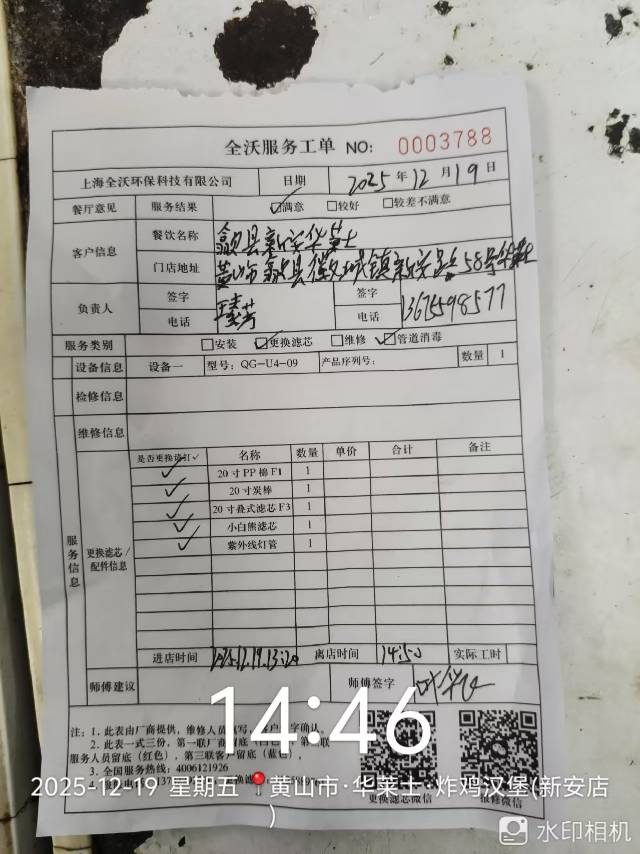 全沃服务工单 NO: 0003788
上海全沃环保科技有限公司 日期 2025年12月19日
餐厅意见 服务结果 ☑满意 □较好 □较差不满意
客户信息 餐饮名称 歙县新安华莱士
门店地址 黄山市歙县徽城镇新安路58号华莱士
负责人 签字 签字
电话 电话 13675598577
服务类别 □安装 ☑更换滤芯 □维修 ☑管道消毒
设备信息 设备一 型号: QG-U4-09 产品序列号: 数量 1
检修信息
维修信息
服务信息
更换滤芯/配件信息
是否更换请打✓ 名称 数量 单价 合计 备注
✓ 20寸PP棉F1 1
✓ 20寸炭棒 1
✓ 20寸叠式滤芯F3 1
✓ 小白熊滤芯 1
✓ 紫外线灯管 1
进店时间 2025.12.19.13:20 离店时间 14:50 实际工时
师傅建议 师傅签字
注: 1. 此表由厂商提供, 维修人员填写, 客户签字确认。
2. 此表一式三份, 第一联厂商留底(白色), 第二联
服务人员留底(红色), 第三联客户留底(蓝色)。
3. 全国服务热线: 4006121926
更换滤芯微信 维修微信
14:46
2025-12-19 星期五 黄山市·华莱士·炸鸡汉堡(新安店
)
水印相机